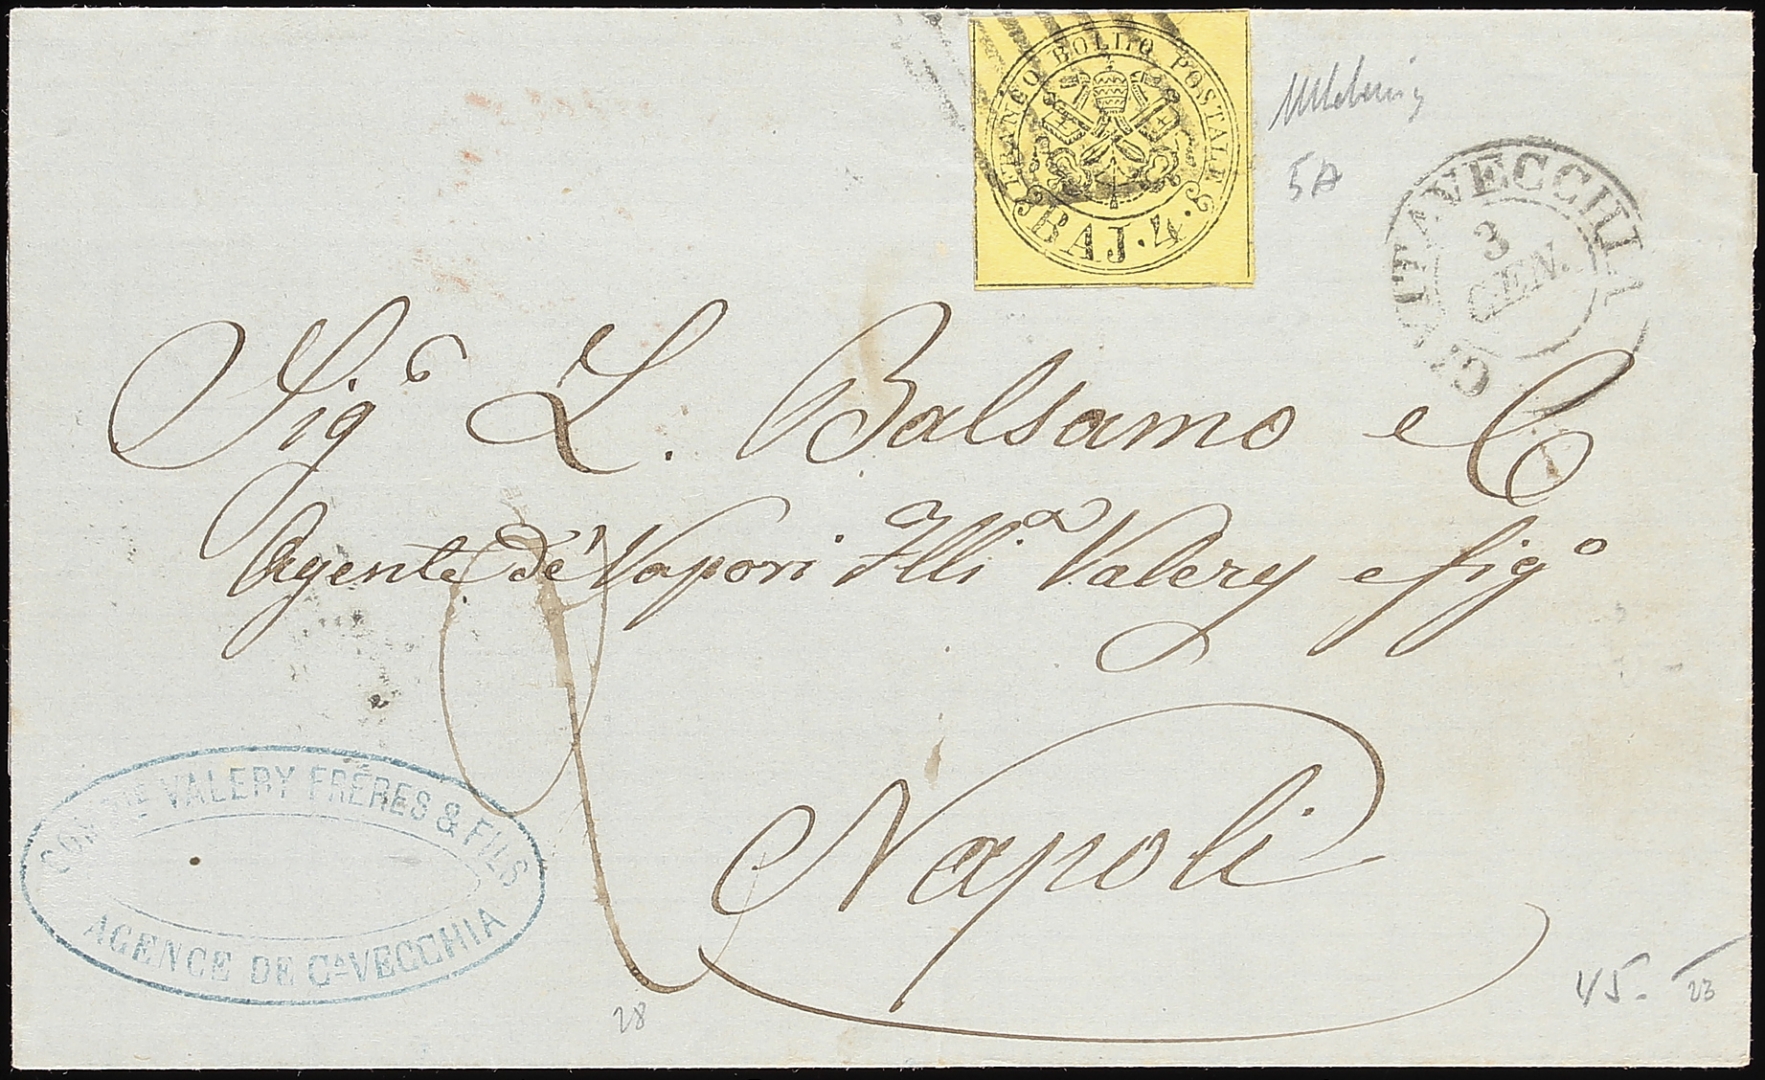 FRANCO BOLLO POSTALE
BAJ. 4.
5A
CIVITAVECCHIA
3
GEN.
Sigʳ L. Balsamo e C
Agente de' Vapori Flli Valery e figº
Napoli
COMP.IE VALERY FRÈRES & FILS
AGENCE DE Cᴬ VECCHIA
28
45.-
23